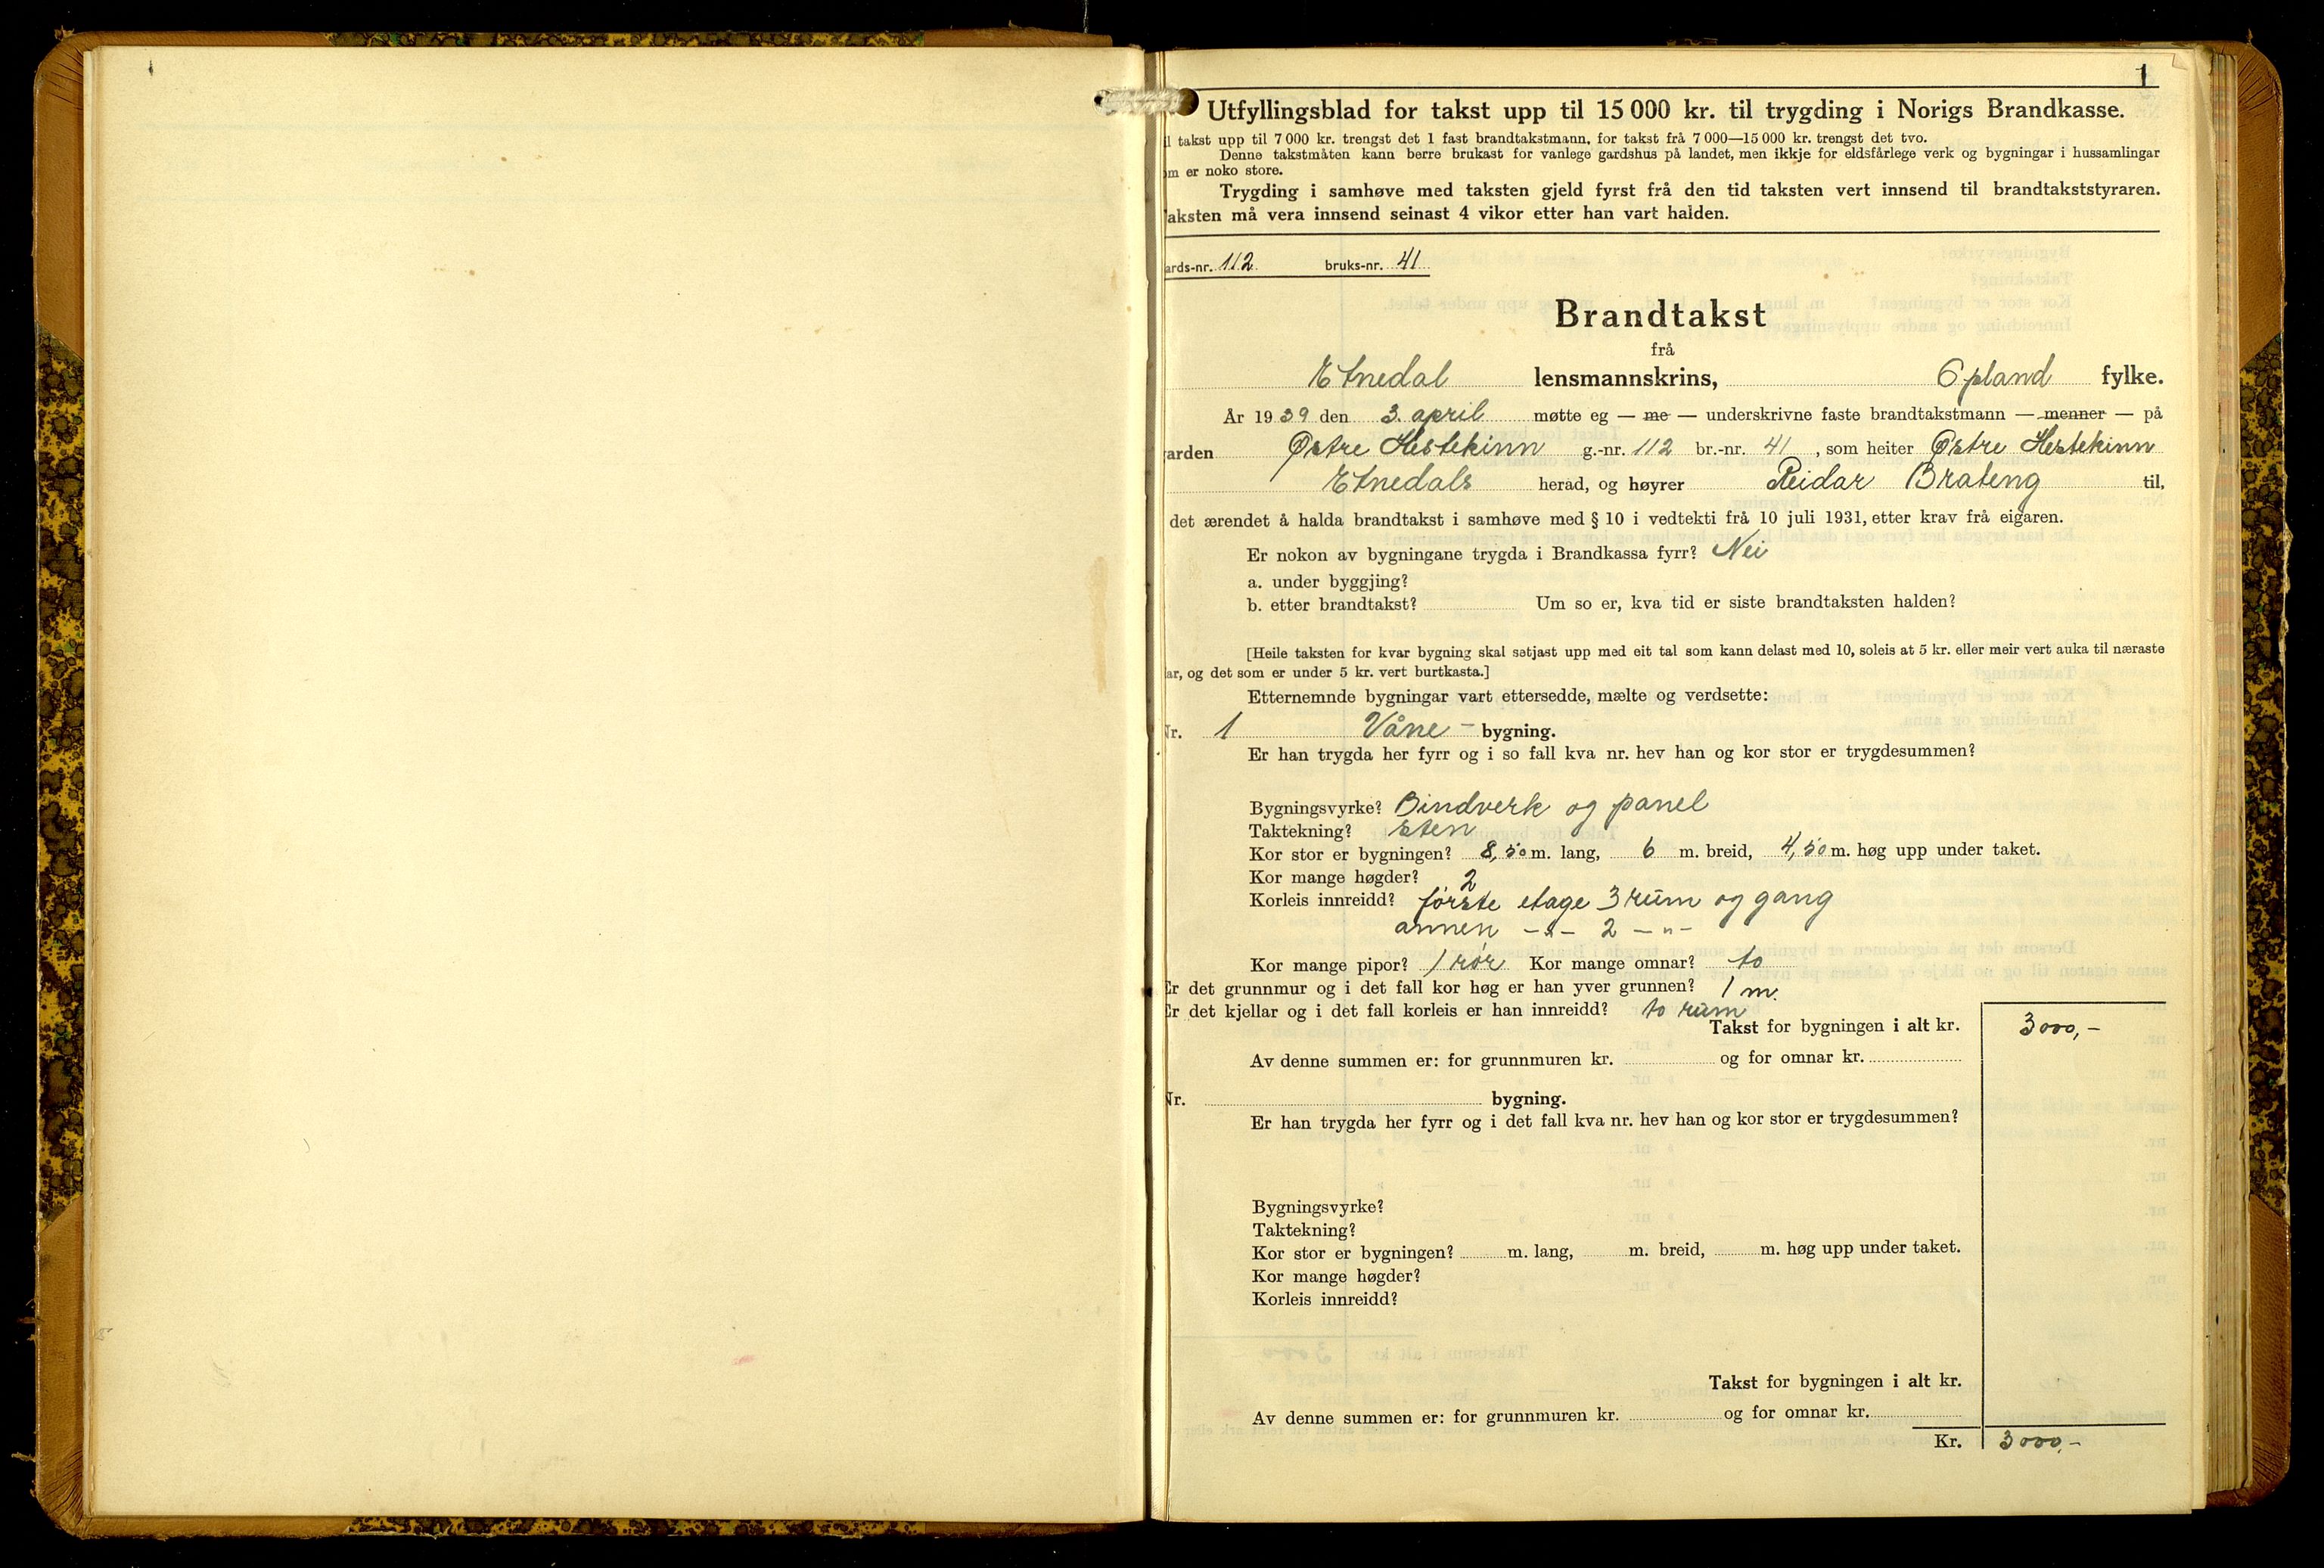 1
Utfyllingsblad for takst upp til 15 000 kr. til trygding i Norigs Brandkasse.
l takst upp til 7 000 kr. trengst det 1 fast brandtakstmann, for takst frå 7 000—15 000 kr. trengst det tvo.
Denne takstmåten kann berre brukast for vanlege gardshus på landet, men ikkje for eldsfårlege verk og bygningar i hussamlingar
om er noko store.
Trygding i samhøve med taksten gjeld fyrst frå den tid taksten vert innsend til brandtakststyraren.
aksten må vera innsend seinast 4 vikor etter han vart halden.
ards-nr. 112 bruks-nr. 41
Brandtakst
frå
Etnedal lensmannskrins, Opland fylke.
År 1939 den 3. april møtte eg — me — underskrivne faste brandtakstmann — menner — på
arden Østre Hestekinn g.-nr. 112 br.-nr. 41, som heiter Østre Hestekinn
Etnedals herad, og høyrer Reidar Brateng til,
det ærendet å halda brandtakst i samhøve med § 10 i vedtekti frå 10 juli 1931, etter krav frå eigaren.
Er nokon av bygningane trygda i Brandkassa fyrr? Nei
a. under byggjing?
b. etter brandtakst? Um so er, kva tid er siste brandtaksten halden?
[Heile taksten for kvar bygning skal setjast upp med eit tal som kann delast med 10, soleis at 5 kr. eller meir vert auka til næraste
ar, og det som er under 5 kr. vert burtkasta.]
Etternemnde bygningar vart ettersedde, mælte og verdsette:
Nr. 1 Våne- bygning.
Er han trygda her fyrr og i so fall kva nr. hev han og kor stor er trygdesummen?
Bygningsvyrke? Bindverk og panel
Taktekning? sten
Kor stor er bygningen? 8,50 m. lang, 6 m. breid, 4,50 m. høg upp under taket.
Kor mange høgder? 2
Korleis innreidd? første etage 3 rum og gang
annen -"- 2 -"-
Kor mange pipor? 1 rør Kor mange omnar? to
Er det grunnmur og i det fall kor høg er han yver grunnen? 1 m.
Er det kjellar og i det fall korleis er han innreidd? to rum
Takst for bygningen i alt kr. 3000,-
Av denne summen er: for grunnmuren kr. og for omnar kr.
Nr. bygning.
Er han trygda her fyrr og i det fall kva nr. hev han og kor stor er trygdesummen?
Bygningsvyrke?
Taktekning?
Kor stor er bygningen? m. lang, m. breid, m. høg upp under taket.
Kor mange høgder?
Korleis innreidd?
Takst for bygningen i alt kr.
Av denne summen er: for grunnmuren kr. og for omnar kr.
Kr. 3000,-